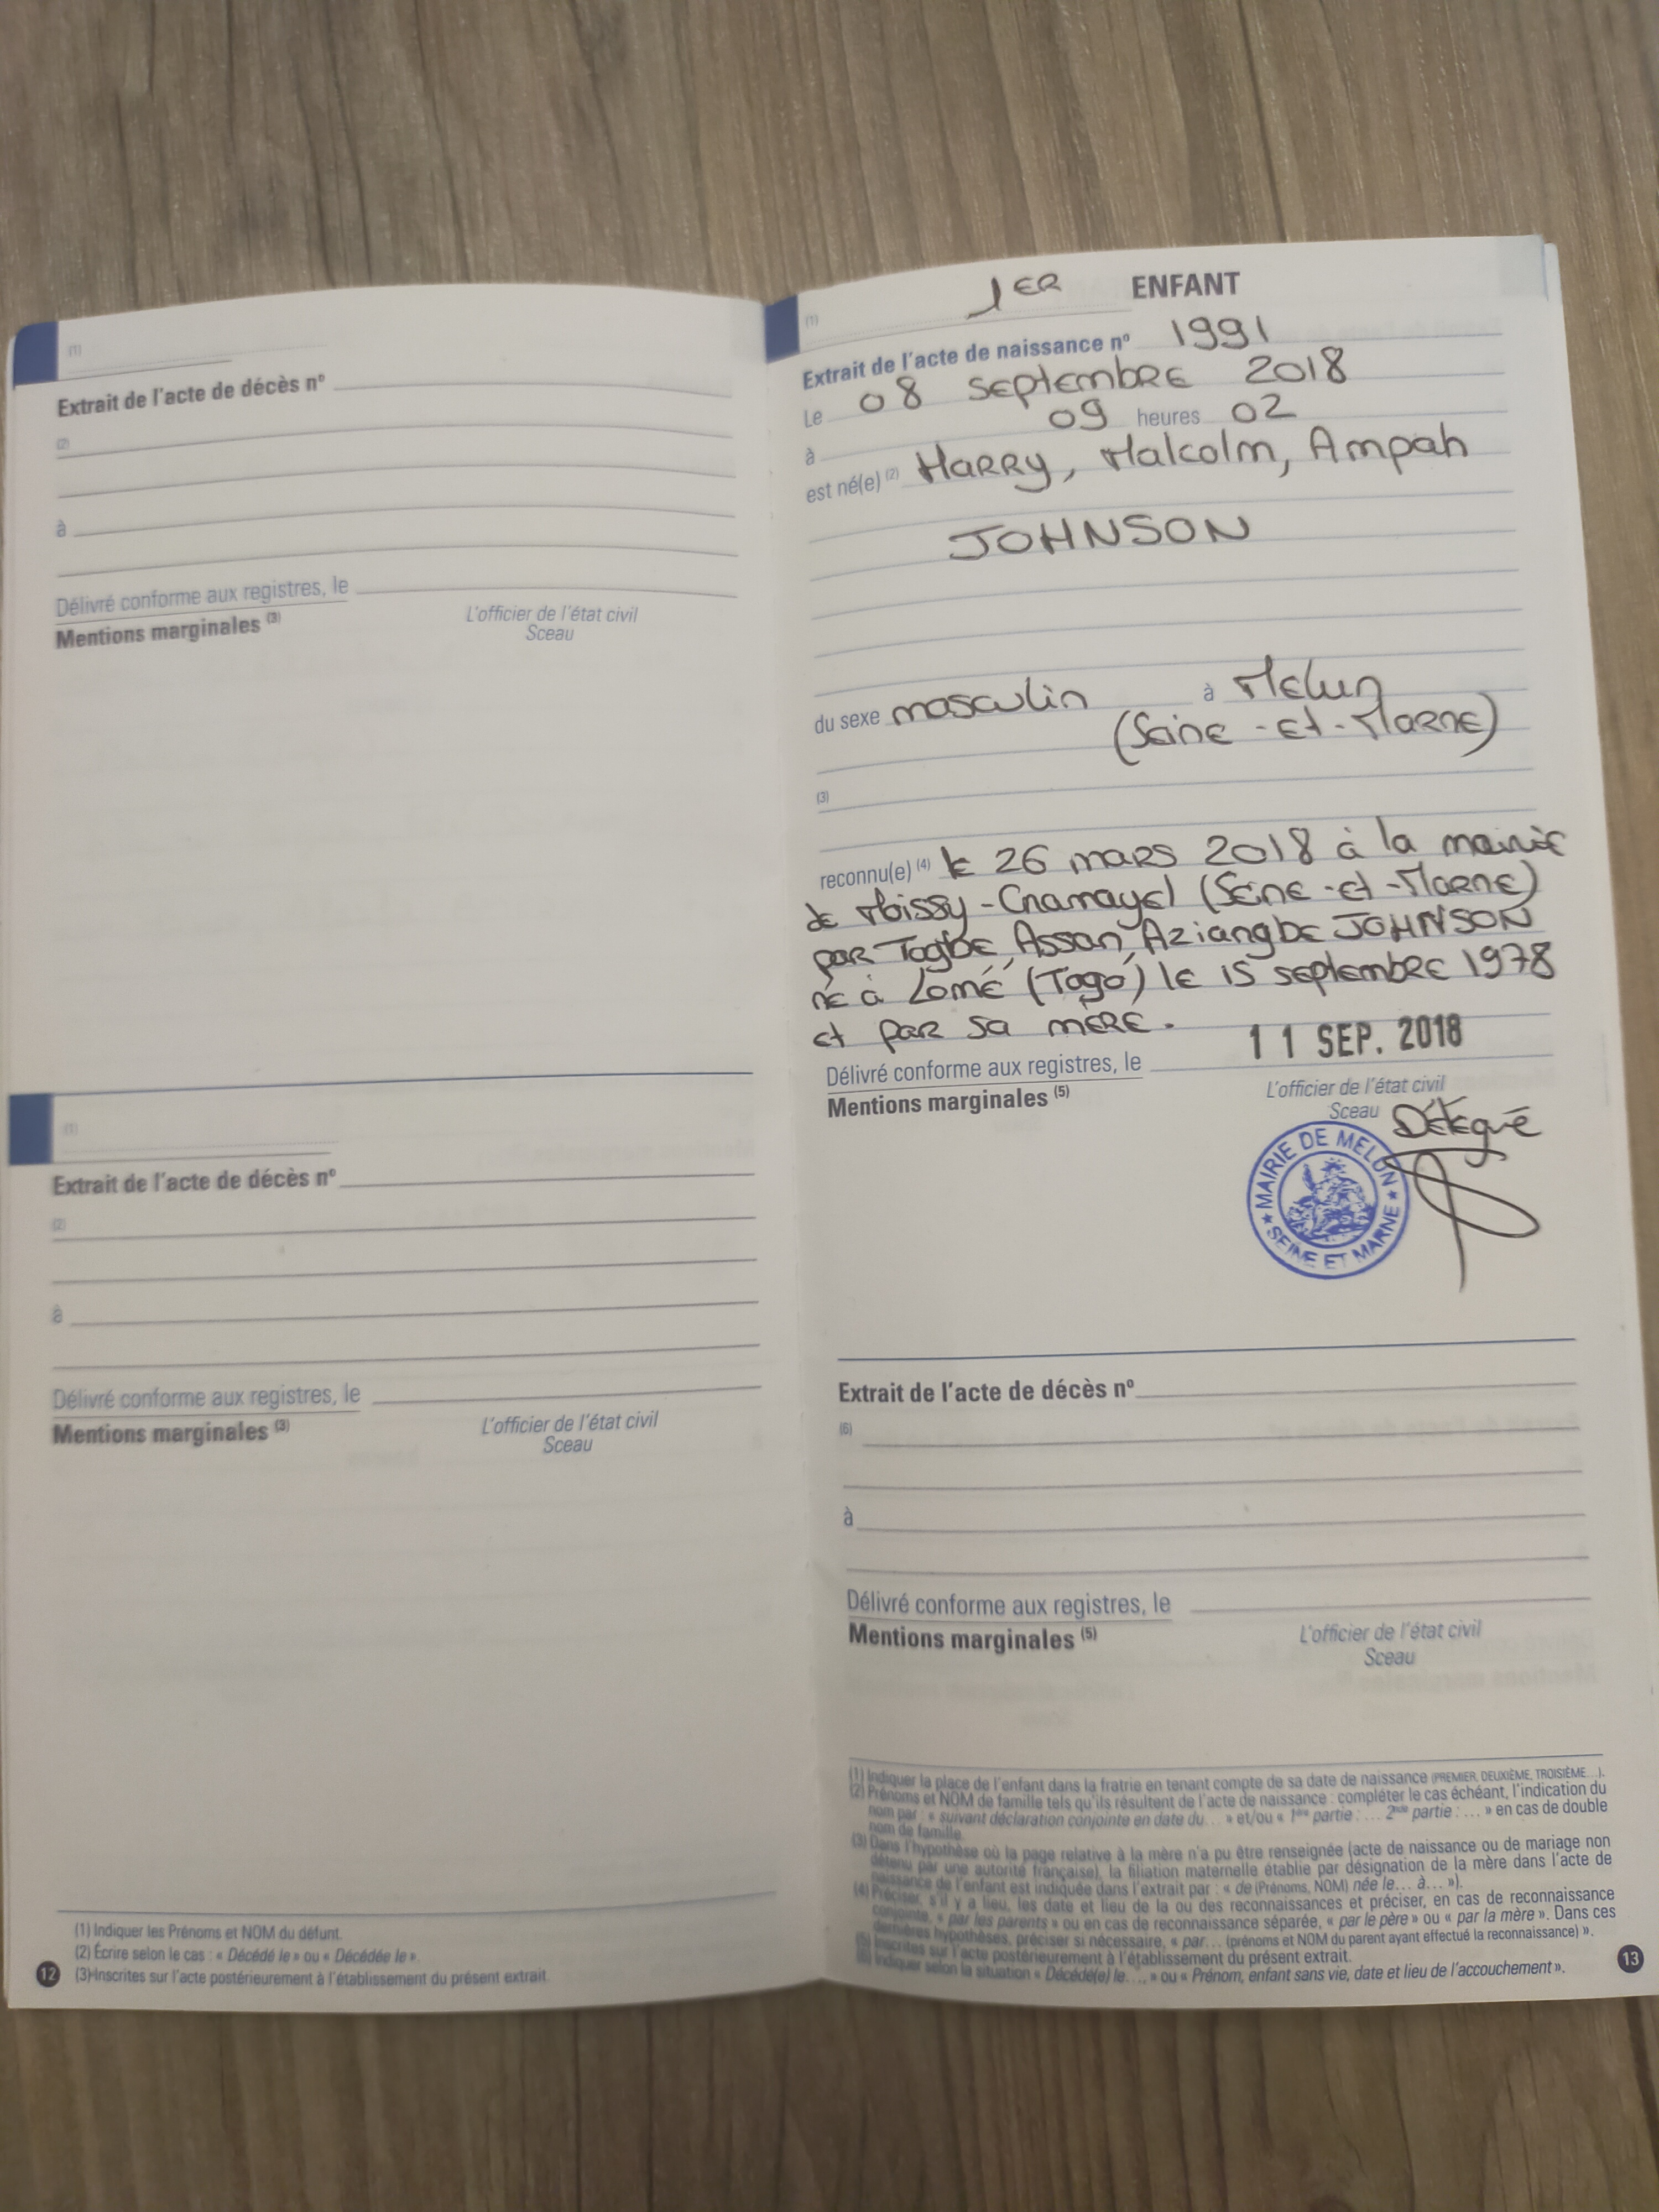 (1)
Extrait de l'acte de décès nº
(2)
à
Délivré conforme aux registres, le
Mentions marginales (3)
L'officier de l'état civil
Sceau
(1)
Extrait de l'acte de décès nº
(2)
à
Délivré conforme aux registres, le
Mentions marginales (3)
L'officier de l'état civil
Sceau
(1) Indiquer les Prénoms et NOM du défunt.
(2) Écrire selon le cas : « Décédé le » ou « Décédée le ».
(3) Inscrites sur l'acte postérieurement à l'établissement du présent extrait.
12
(1) 1ER ENFANT
Extrait de l'acte de naissance nº 1991
Le 08 septembre 2018
à 09 heures 02
est né(e) (2) Harry, Malcolm, Ampah
JOHNSON
du sexe masculin à Melun
(Seine-et-Marne)
(3)
reconnu(e) (4) le 26 mars 2018 à la mairie
de Moissy-Cramayel (Seine-et-Marne)
par Togbé, Assan, Aziangbé JOHNSON
né à Lomé (Togo) le 15 septembre 1978
et par sa mère.
11 SEP. 2018
Délivré conforme aux registres, le
Mentions marginales (5)
L'officier de l'état civil
Sceau Délégué
MAIRIE DE MELUN
SEINE ET MARNE
Extrait de l'acte de décès nº
(6)
à
Délivré conforme aux registres, le
Mentions marginales (5)
L'officier de l'état civil
Sceau
(1) Indiquer la place de l'enfant dans la fratrie en tenant compte de sa date de naissance (PREMIER, DEUXIÈME, TROISIÈME…).
(2) Prénoms et NOM de famille tels qu'ils résultent de l'acte de naissance : compléter le cas échéant, l'indication du
nom par : « suivant déclaration conjointe en date du… » et/ou « 1ère partie : … 2nde partie : … » en cas de double
nom de famille.
(3) Dans l'hypothèse où la page relative à la mère n'a pu être renseignée (acte de naissance ou de mariage non
détenu par une autorité française), la filiation maternelle établie par désignation de la mère dans l'acte de
naissance de l'enfant est indiquée dans l'extrait par : « de (Prénoms, NOM) née le… à… »).
(4) Préciser, s'il y a lieu, les date et lieu de la ou des reconnaissances et préciser, en cas de reconnaissance
conjointe, « par les parents » ou en cas de reconnaissance séparée, « par le père » ou « par la mère ». Dans ces
dernières hypothèses, préciser si nécessaire, « par… (prénoms et NOM du parent ayant effectué la reconnaissance) ».
(5) Inscrites sur l'acte postérieurement à l'établissement du présent extrait.
(6) Indiquer selon la situation « Décédé(e) le…, » ou « Prénom, enfant sans vie, date et lieu de l'accouchement ».
13